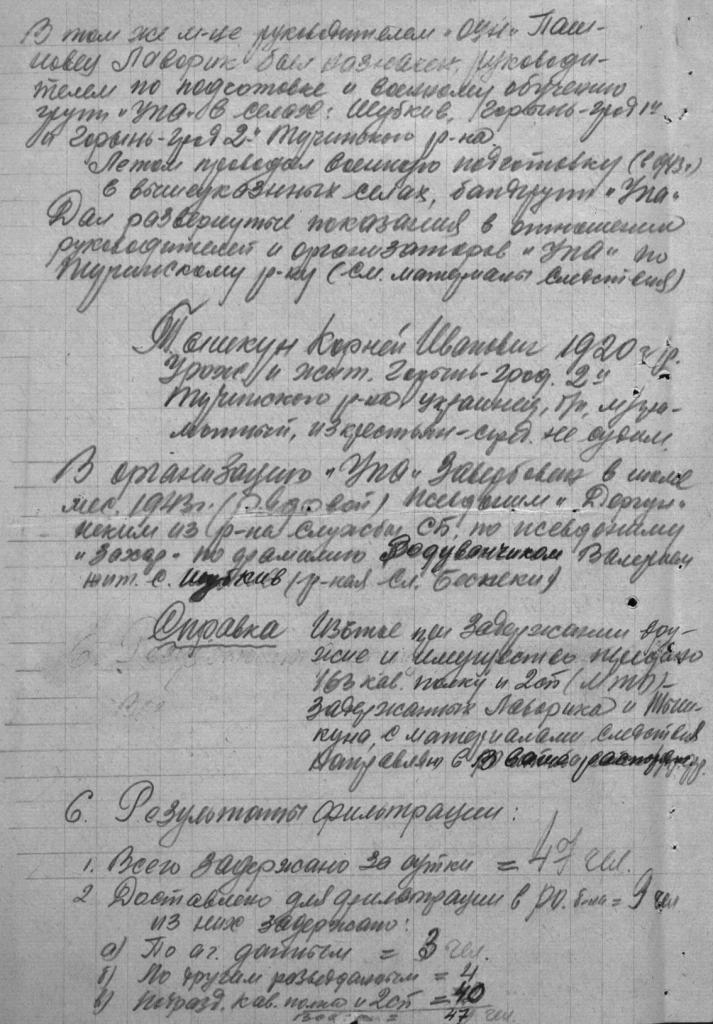 В том же м-це руководителем "ОУН" Паш-
ковец Лаворик был назначен руководи-
телем по подготовке и военному обучению
групп "Упа" в селах: Шубкив, Горынь-град 1й
и Горынь-град 2й Тучинского р-на.
Летом проводил военную подготовку (1943г)
в вышеуказнных селах, бандгрупп "Упа"
Дал развернутые показания в отношении
руководителей и организаторов "Упа" по
Тучинскому р-ну (см. материалы следствия)
Корней Иванович 1920 г.р.
Урож. и жит. Горынь-град. 2й
Тучинского р-на украинец, б/п, мало-
мотный, из крестьян-серед. не судим.
В организацию "Упа" завербован в июле
мес. 1943г. (рядовой) псевдоним
неким из р-на службы СБ, по псевдониму
"Захар" по фамилию Валерием
жит. с. Шубкив (р-ная сл. Беспеки)
Справка Изътое при задержании ору-
жие и имущество передано
163 кав. полку и 2сп (МТО)-
Задержанных Лаворика и
куна, с материалами следствия
направляю в
6. Результаты фильтрации:
1. Всего задержано за сутки = 47 чел.
2 Доставлено для фильтрации в ро. б-на = 9 чел
из них задержано:
а) По аг. данным = 3 чел.
б) По другим разведданным = 4
в) Подразд. кав. полка и 2сп = 40
47 чел.